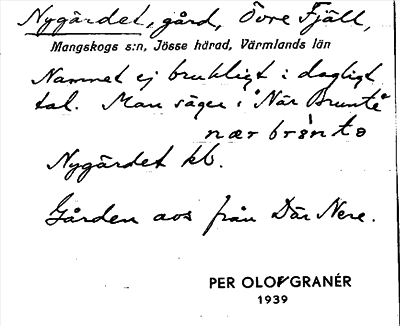 Nygärdet, gård, Övre Fjäll,
Mangskogs s:n, Jösse härad, Värmlands län
Namnet ej brukligt i dagligt
tal. Man säger i "När Brunte"
nær brɵ̀ntə
Nygärdet kb.
Gården avs från Där Nere.
PER OLOF GRANÉR
1939